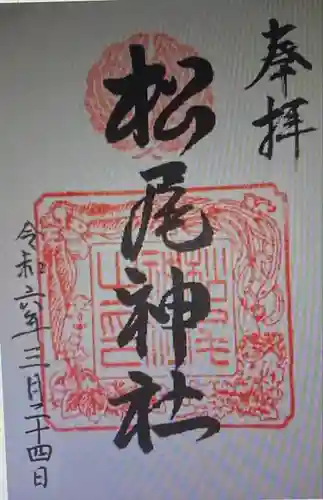 奉拝
松尾神社
令和六年三月二十四日